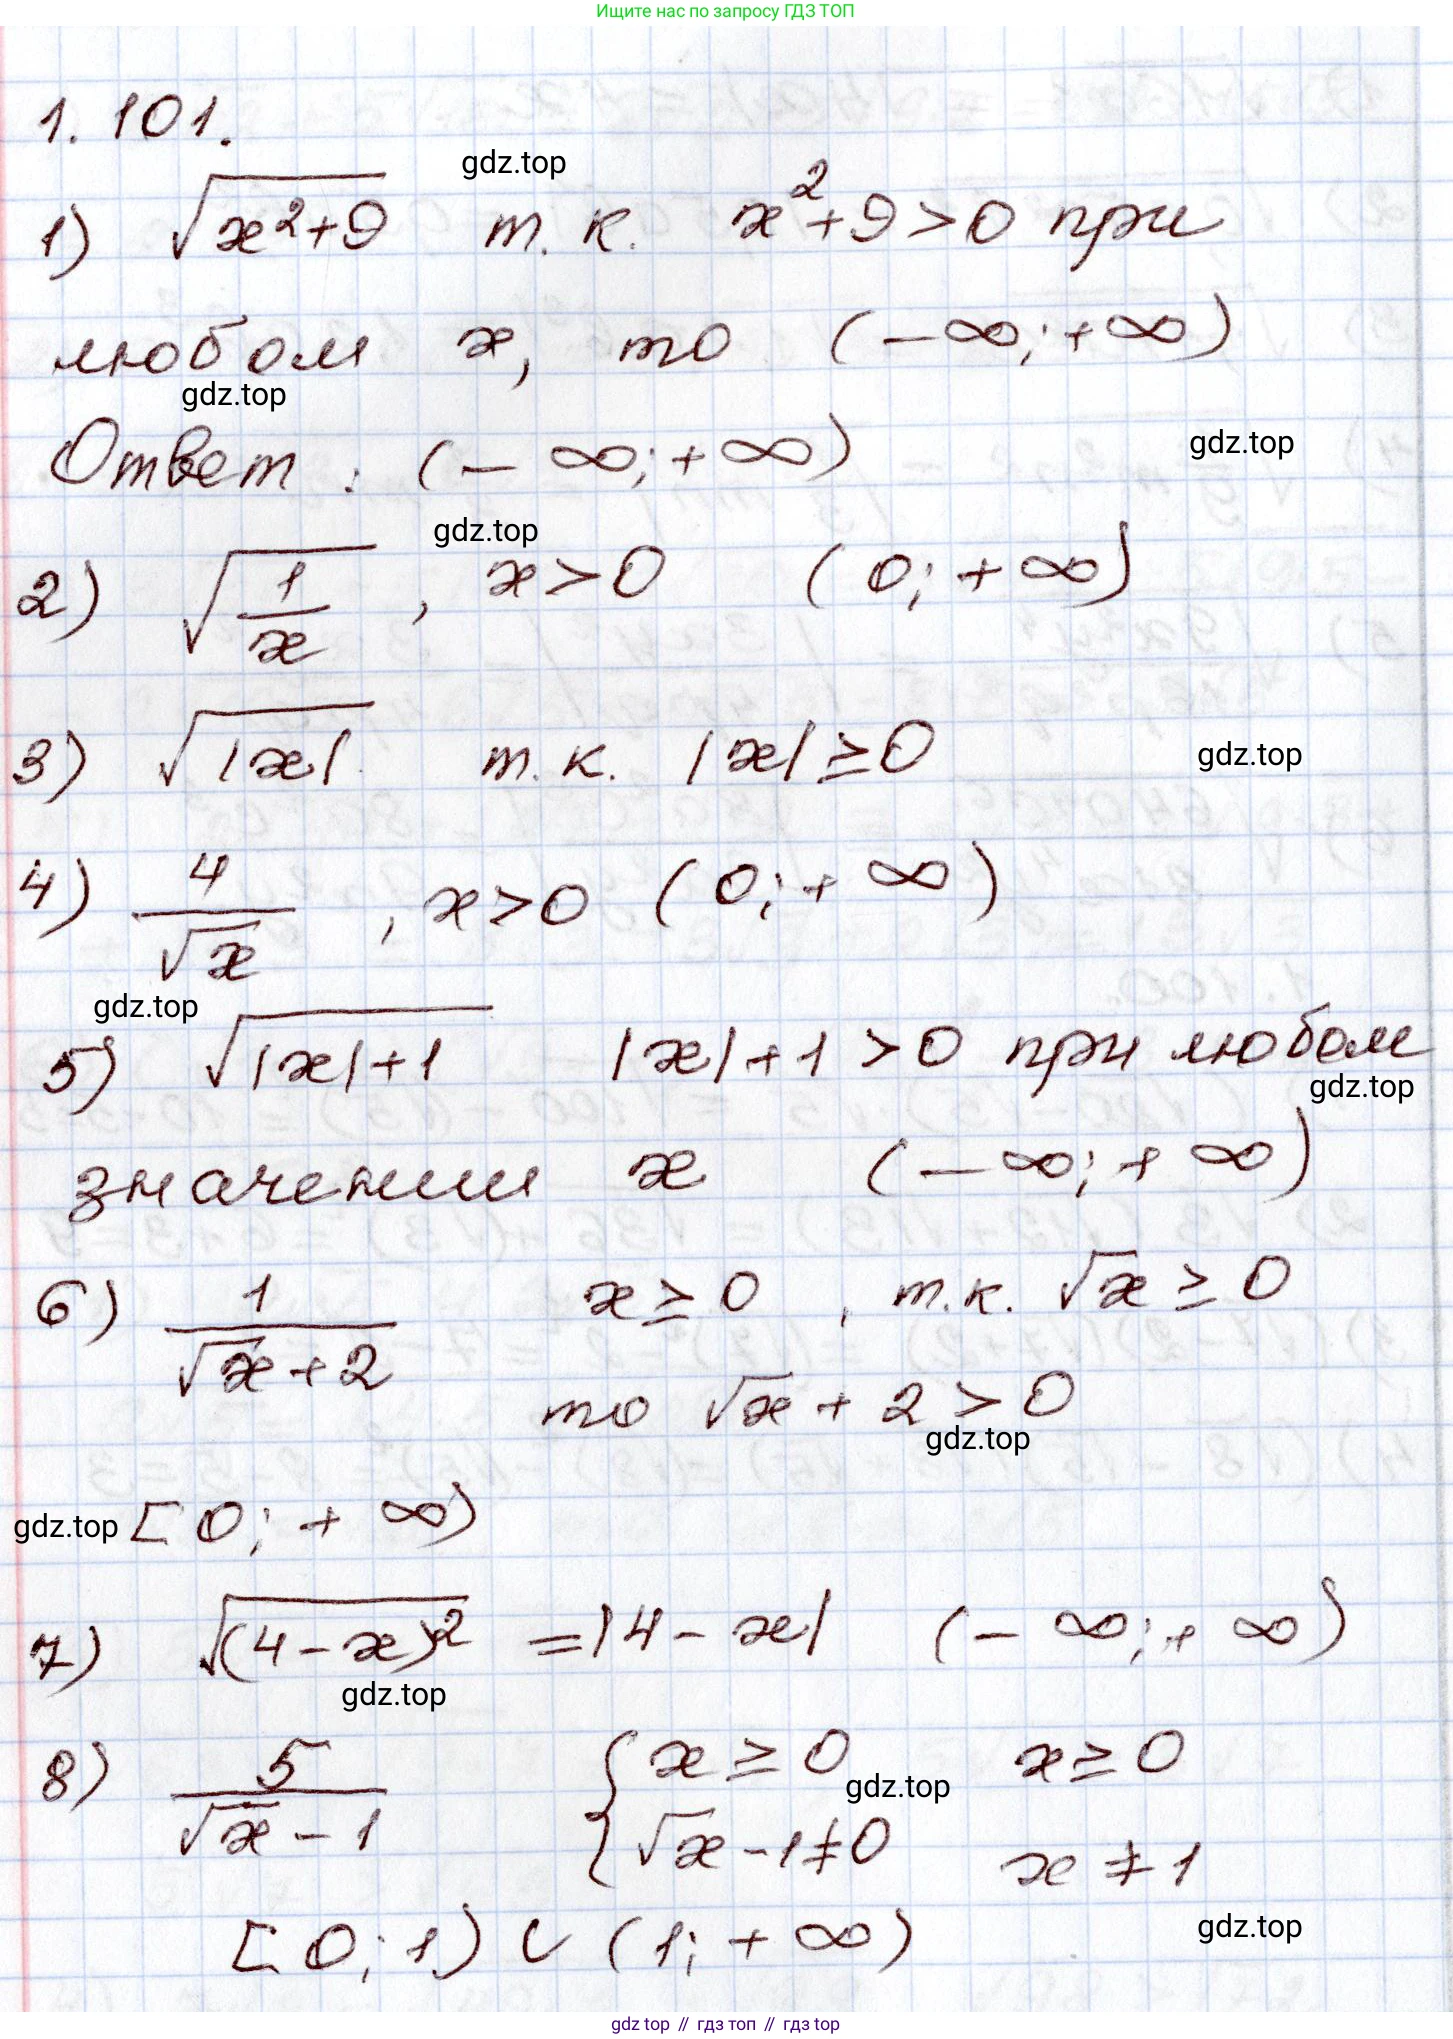 Ищите нас по запросу ГДЗ ТОП
1.101.
gdz.top
1) √(x²+9) т.к. x²+9>0 при
любом x, то (-∞;+∞)
gdz.top
Ответ: (-∞;+∞)
gdz.top
gdz.top
2) √(1/x), x>0 (0;+∞)
3) √|x| т.к. |x|≥0
gdz.top
4) 4/√x, x>0 (0;+∞)
gdz.top
5) √(|x|+1) |x|+1>0 при любом
gdz.top
значении x (-∞;+∞)
6) 1/(√x+2) x≥0, т.к. √x≥0
то √x+2>0
gdz.top
gdz.top
[0;+∞)
7) √((4-x)²) =|4-x| (-∞;+∞)
gdz.top
8) 5/(√x-1) { x≥0 x≥0
gdz.top
√x-1≠0 x≠1
[0;1) ∪ (1;+∞)
gdz.top
gdz.top // гдз топ // gdz.top